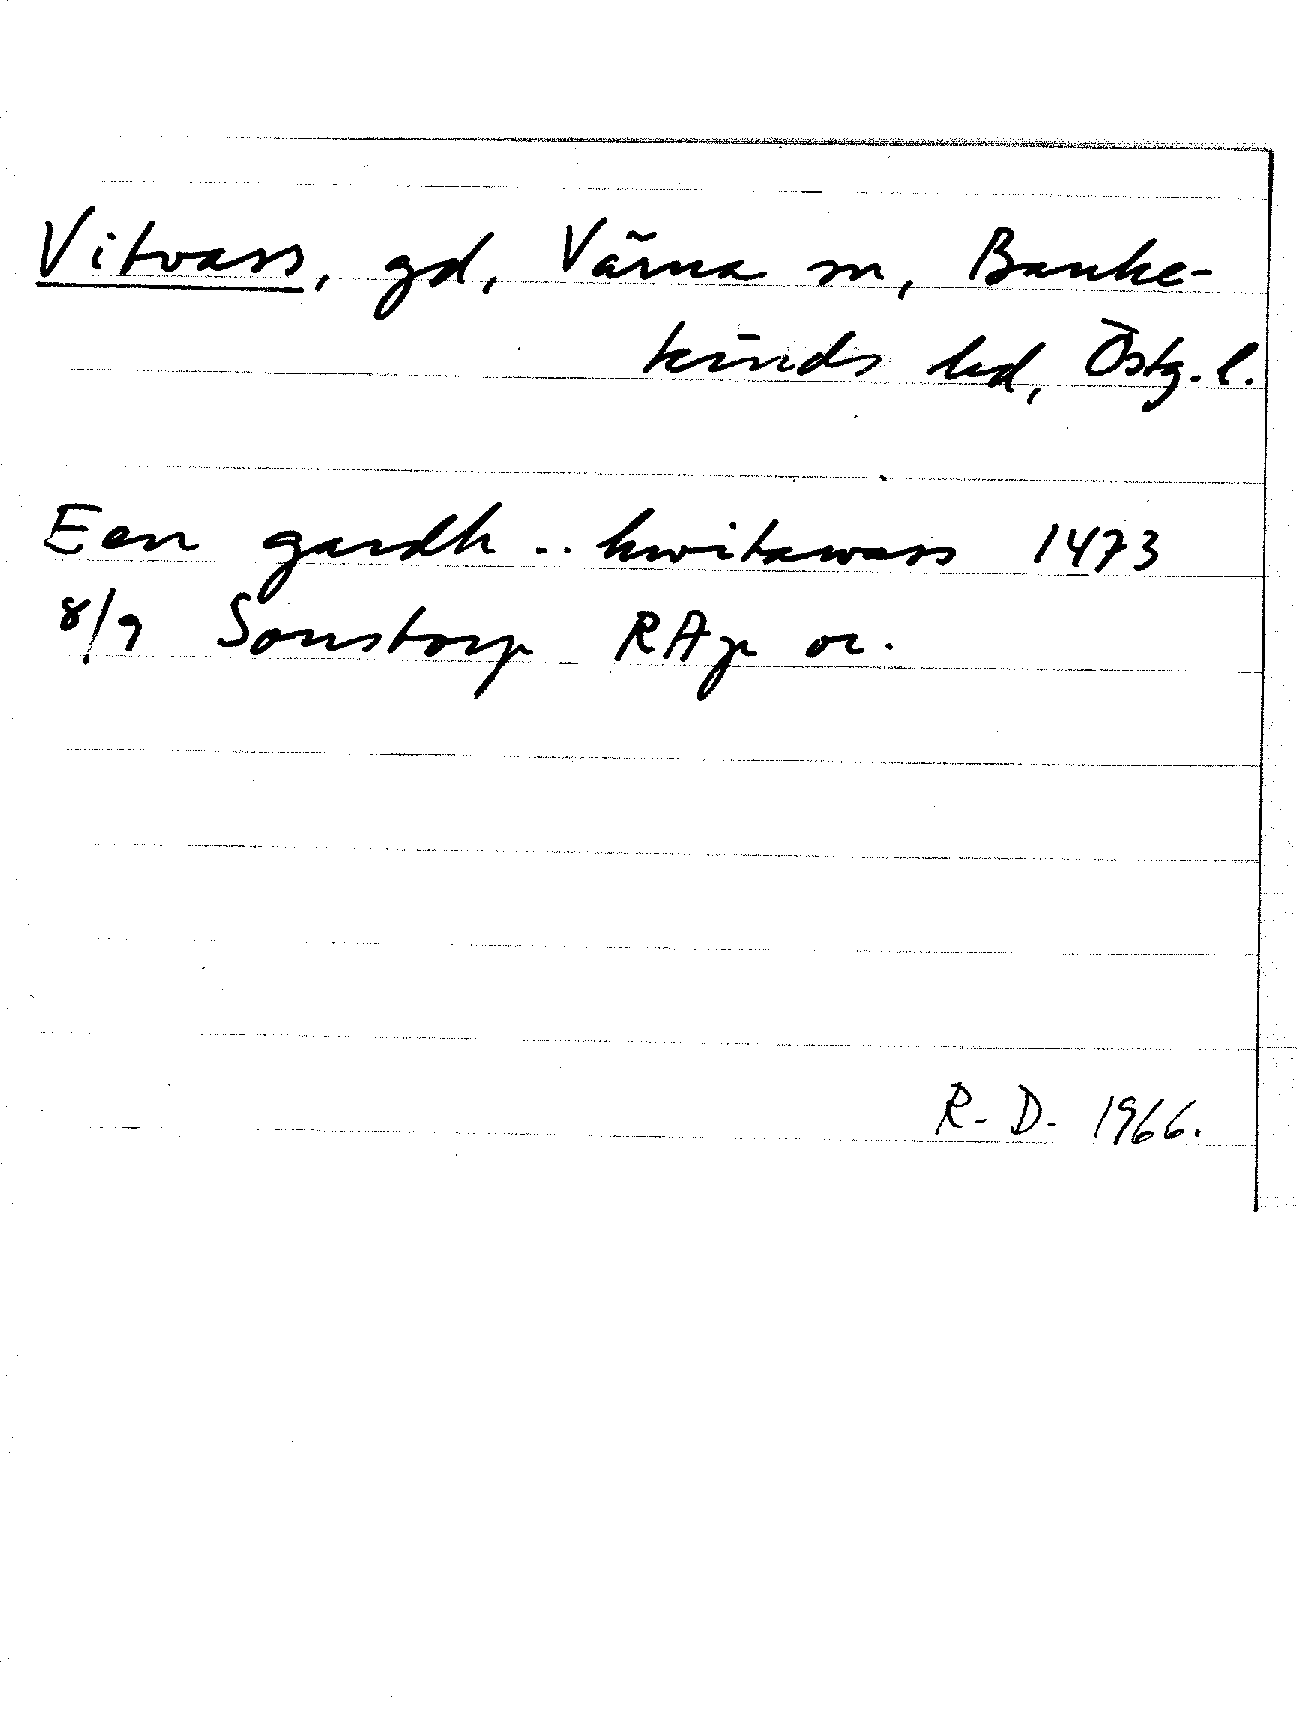 Vitvass, gd, Värna sn, Banke-
kinds hd, Östg. l.
Een gardh .. hwitawass 1473
8/9 Sonstorp RAp or.
R. D. 1966.